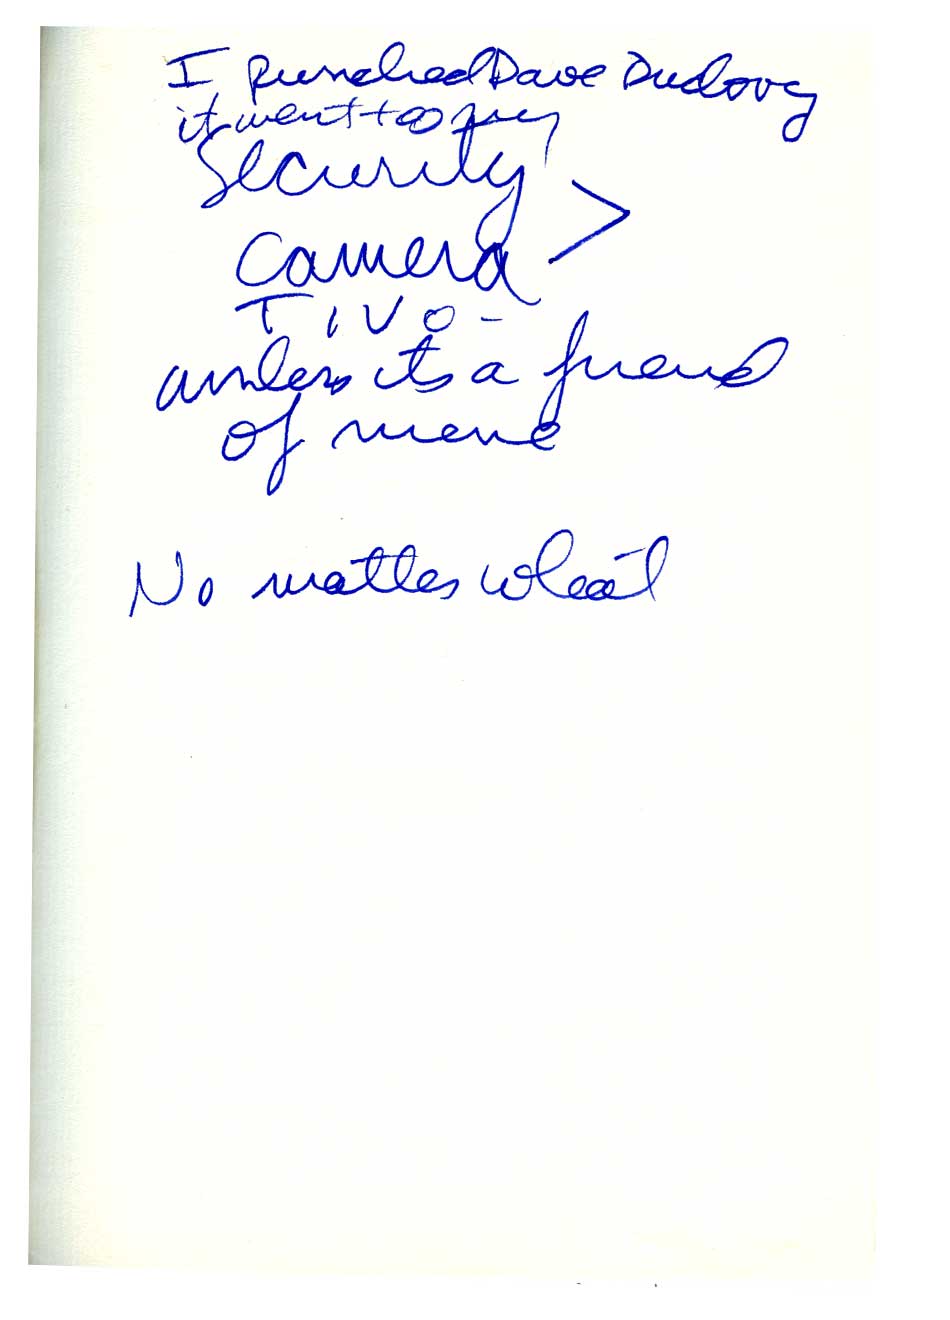 I punched Dave Dudovy
it went to my
Security >
Camera
TIVO -
unless its a friend
of mine
No matter what